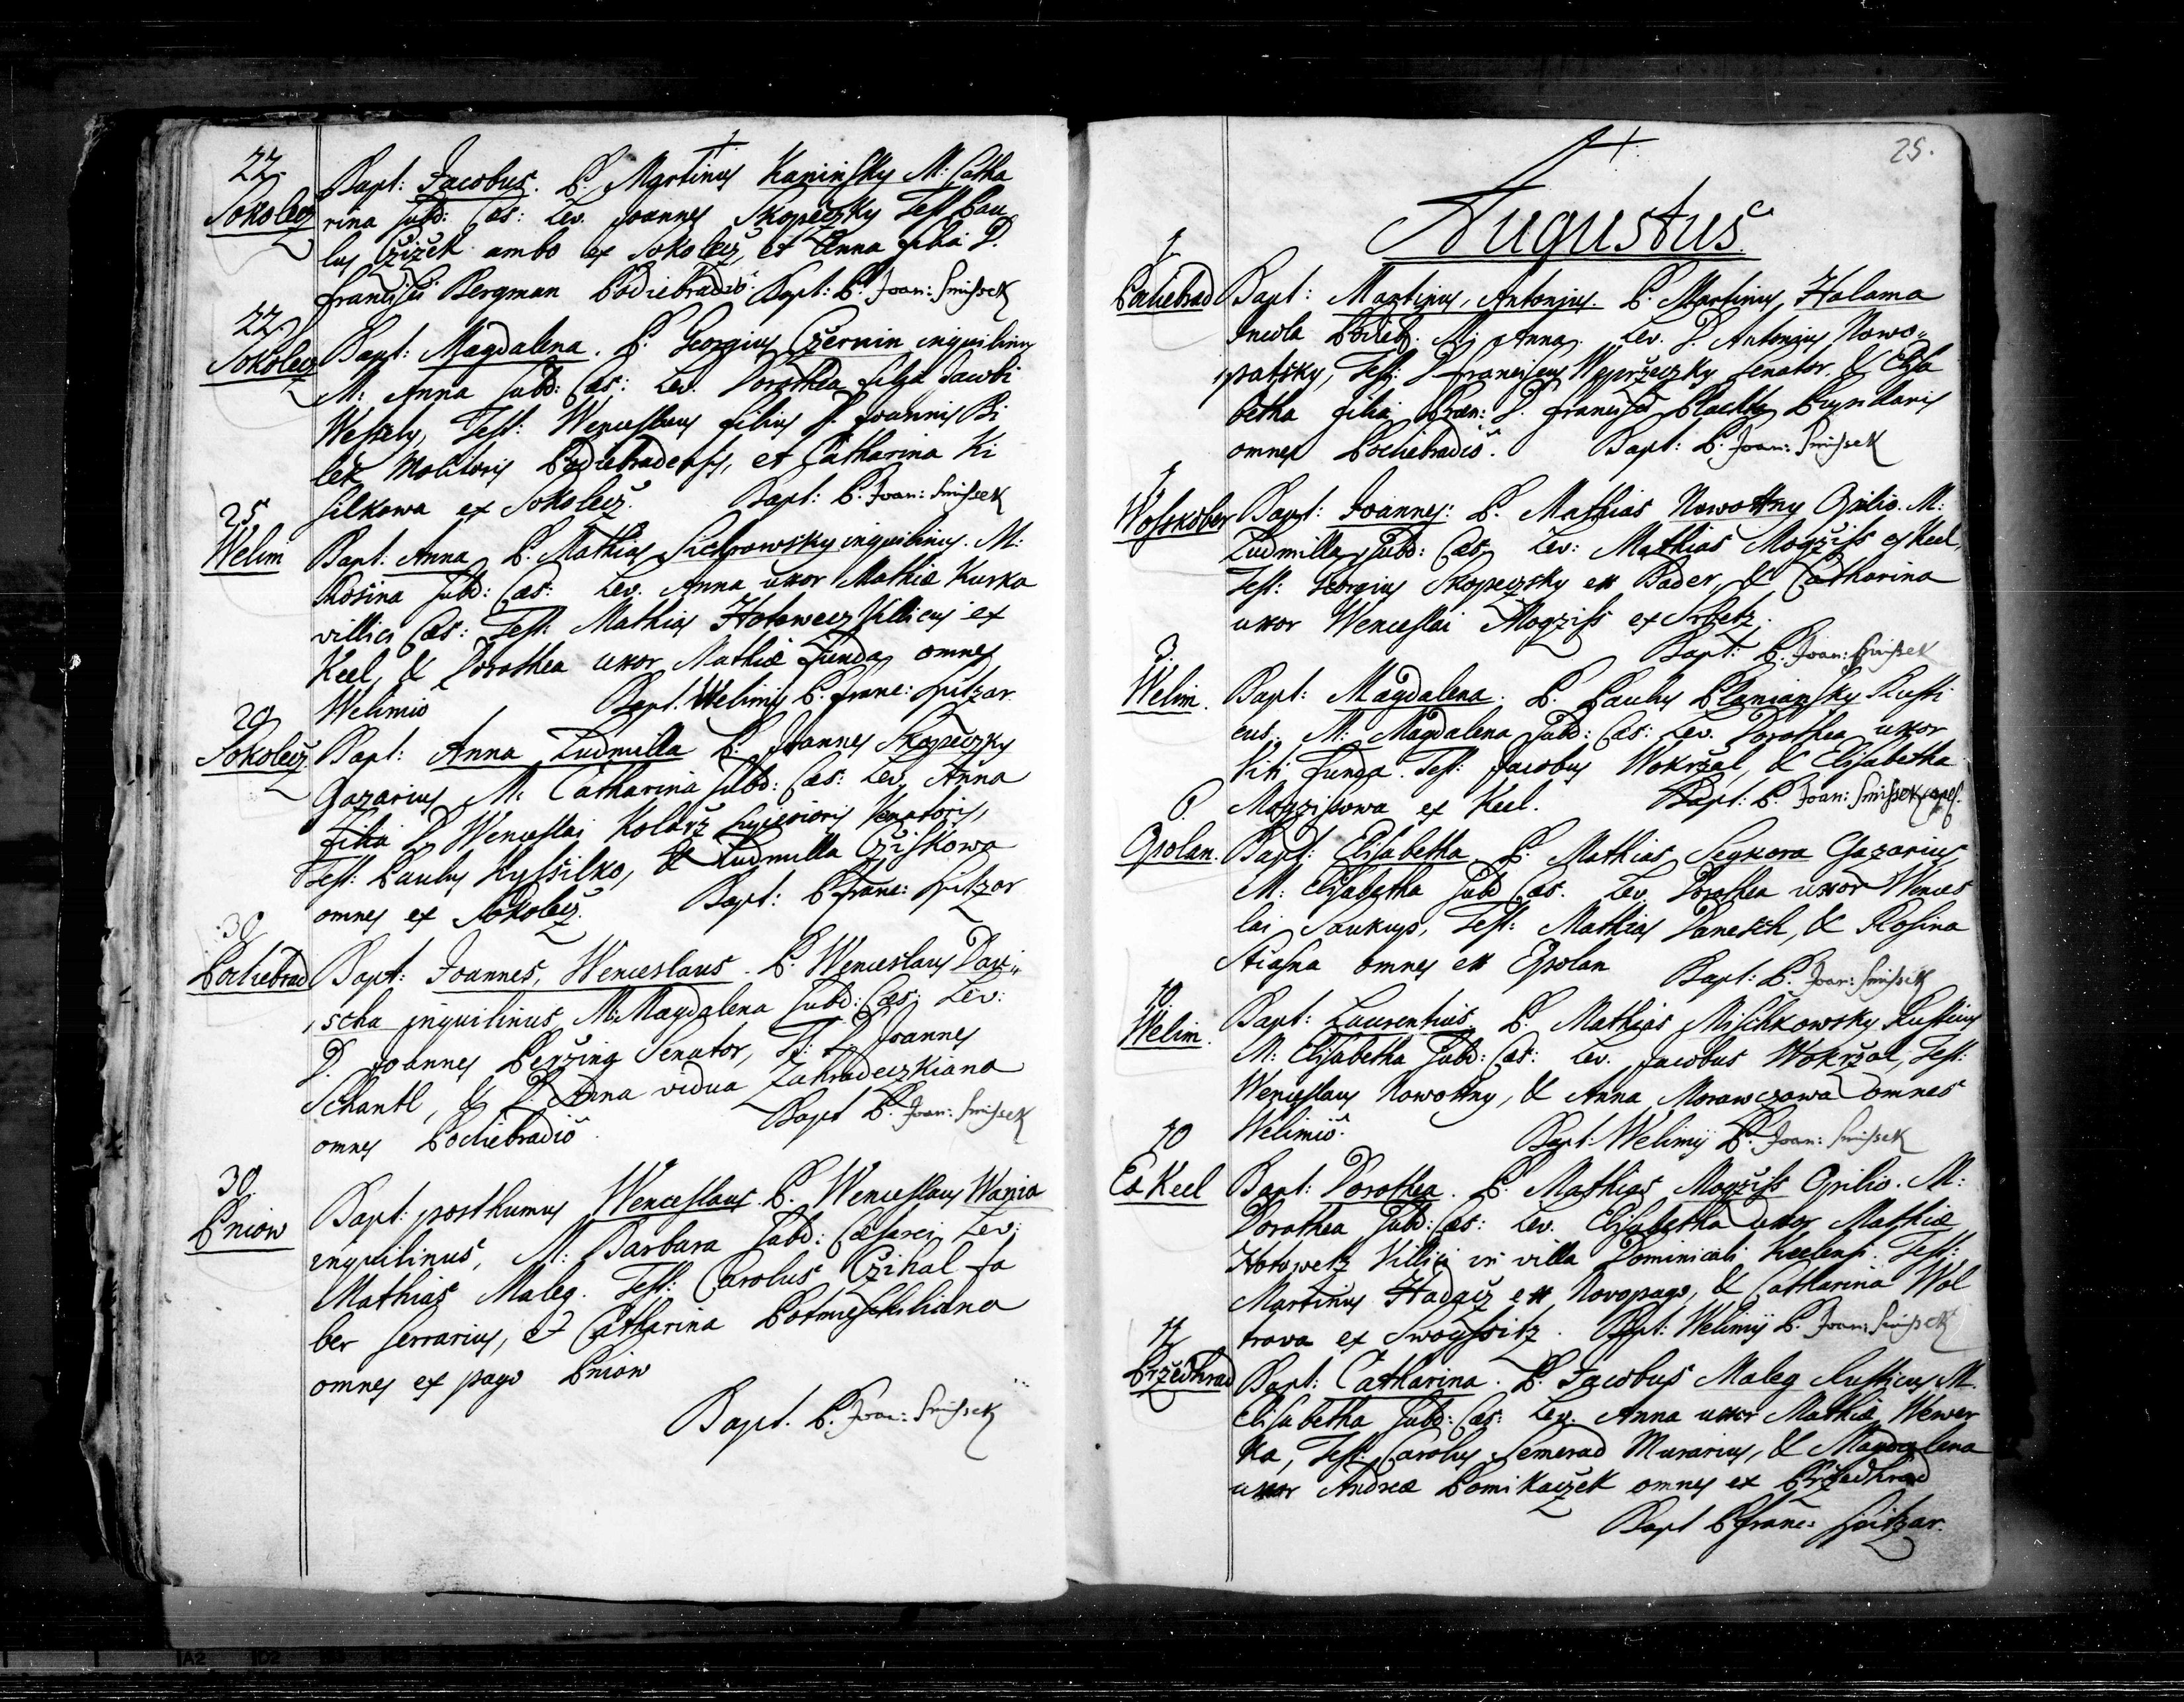 22.
Sokolecz
Bapt: Jacobus. P. Martinus Kaninsky M: Catha
rina Subd: Cæs: Lev. Joannes Skopeczky Test Pau
lus Cžižek ambo ex Sokolecz, et Anna filia D.
Francisci Bergman Podiebradio. Bapt: P. Joan: Smissek
22.
Sokolecz
Bapt: Magdalena. P. Georgius Czernin inquilinus
M: Anna Subd: Cæs: Lev. Dorothea filia Jacobi
Wessely, Test: Wenceslaus filius P. Joannis Bi
lek Molitoris Podiebradensis, et Catharina Ki
silkowa ex Sokolecz. Bapt: P. Joan: Smissek
25
Welim
Bapt: Anna P. Mathias Sichrowsky inquilinus. M:
Rosina Subd: Cæs: Lev. Anna uxor Mathiæ Kurka
villici Cæs: Test: Mathias Hotowecz Villicus ex
Keel, & Dorothea uxor Mathiæ Funda omnes
Welimio Bapt. Welimij P. Franc: Spitzar
29
Sokolecz
Bapt: Anna Ludmilla P: Joannes Skopeczky
Gazarius M: Catharina Subd: Cæs: Lev. Anna
filia D. Wenceslai Kolarz Venatoris,
Test: Paulus Kyssilko, & Ludmilla Cžiskowa
omnes ex Sokolecz. Bapt: P Franc: Spitzar
30
Podiebrad
Bapt: Joannes, Wenceslaus. P. Wenceslaus Davi„
scha inquilinus M: Magdalena Subd: Cæs: Lev:
D. Joannes Peržing Senator, T: D. Joannes
Schantl, & D. Anna vidua Zahradeczkiana
omnes Podiebradio Bapt P. Joan: Smissek
30.
Pniow
Bapt: posthumus Wenceslaus. P. Wenceslaus Wania
inquilinus, M: Barbara Subd: Cæsarei Lev:
Mathias Maleg. Test: Carolus Czihal fa
ber serrarius, et Catharina
omnes ex pago Pniow
Bapt. P. Joan: Smissek
25.
Augustus
1.
Podiebrad
Bapt: Martinus, Antonius. P. Martinus, Halama
Incola Podieb. M: Anna. Lev. D. Antonius Nowo„
patsky, Test: D Franciscus Weprzeczky Senator, & Elisa
betha filia D. Francisci Plachky
omnes Podiebradio. Bapt: P. Joan: Smissek
Wolskober
Bapt: Joannes: P. Mathias Nowottny Opilio. M:
Ludmilla Subd: Cæs Lev: Mathias Mogžiss ex Keel,
Test: Georgius Skopeczky ex Bader, & Catharina
uxor Wenceslai Mogziss ex Srbetz.
Bapt: P. Joan: Smissek
3.
Welim.
Bapt: Magdalena. P. Paulus Planiansky Rusti
cus. M: Magdalena Subd: Cæs: Lev. Dorothea uxor
Viti Funda. Test: Jacobus Wokržal, & Elisabetha
Mogzissowa ex Keel. Bapt: P. Joan: Smissek capel.
Opolan.
Bapt: Elisabetha P. Mathias Segkora Gazarius
M: Elisabetha Subd Cæs. Lev. Dorothea uxor Wences
lai Saukup, Test: Mathias Danetsch, & Rosina
Stiasna omnes ex Opolan Bapt: P. Joan: Smissek
10.
Welim.
Bapt: Laurentius P. Mathias Mischkowsky Rusticus
M: Elisabetha Subd: Cæs: Lev. Jacobus Wokržal, Test:
Wenceslaus Nowottny, & Anna Morawczowa omnes
Welimio. Bapt: Welimij P. Joan: Smissek
10
Ex Keel
Bapt: Dorothea. P. Mathias Mogžiss Opilio. M:
Dorothea Subd: Cæs: Lev. Elisabetha uxor Mathiæ
Hotowetz Villici in villa Dominicali Keelensi. Test:
Martinus Hadacz ex Novopago, & Catharina Wot
trova ex Swogssitz. Bapt: Welimij P. Joan: Smissek
11
Pržedhrad
Bapt: Catharina. P. Jacobus Maleg Rusticus M.
Elisabetha Subd: Cæs: Lev. Anna uxor Mathiæ Wewer
ka, Test: Carolus Semerad Murarius, & Magdalena
uxor Andreæ Pomikaczek omnes ex Pržedhrad
Bapt P Franc: Spitzar.